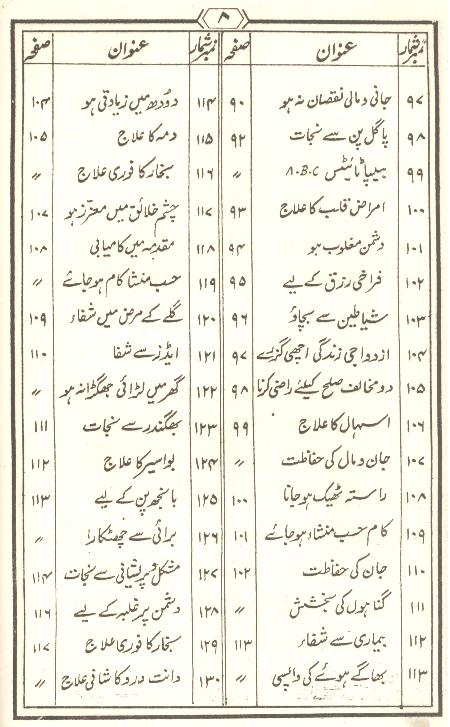 ۸
نمبر شمار عنوان صفحہ
۹۷ جانی و مالی نقصان نہ ہو ۹۰
۹۸ پاگل پن سے نجات ۹۲
۹۹ ہیپاٹائٹس A.B.C 〃
۱۰۰ امراض قلب کا علاج ۹۳
۱۰۱ دشمن مغلوب ہو ۹۴
۱۰۲ فراخی رزق کے لیے ۹۵
۱۰۳ شیاطین سے بچاؤ ۹۶
۱۰۴ ازدواجی زندگی اچھی گزرے ۹۷
۱۰۵ دو مخالف صلح کیلئے راضی کرنا ۹۸
۱۰۶ اسہال کا علاج ۹۹
۱۰۷ جان و مال کی حفاظت 〃
۱۰۸ راستہ ٹھیک ہو جانا ۱۰۰
۱۰۹ کام حسب منشاء ہو جائے ۱۰۱
۱۱۰ جان کی حفاظت ۱۰۲
۱۱۱ گناہوں کی بخشش 〃
۱۱۲ بیماری سے شفاء ۱۱۳
۱۱۳ بھاگے ہوئے کی واپسی 〃
نمبر شمار عنوان صفحہ
۱۱۴ دودھ میں زیادتی ہو ۱۰۴
۱۱۵ دمہ کا علاج ۱۰۵
۱۱۶ بخار کا فوری علاج 〃
۱۱۷ چشم خلائق میں معزز ہو ۱۰۷
۱۱۸ مقدمہ میں کامیابی ۱۰۸
۱۱۹ حسب منشا کام ہو جائے 〃
۱۲۰ گلے کے مرض میں شفاء ۱۰۹
۱۲۱ ایڈز سے شفا ۱۱۰
۱۲۲ گھر میں لڑائی جھگڑا نہ ہو 〃
۱۲۳ بھگندر سے نجات ۱۱۱
۱۲۴ بواسیر کا علاج ۱۱۲
۱۲۵ بانجھ پن کے لیے ۱۱۳
۱۲۶ برائی سے چھٹکارا 〃
۱۲۷ مشکل و پریشانی سے نجات ۱۱۴
۱۲۸ دشمن پر غلبہ کے لیے ۱۱۶
۱۲۹ بخار کا فوری علاج ۱۱۷
۱۳۰ دانت درد کا شافی علاج 〃